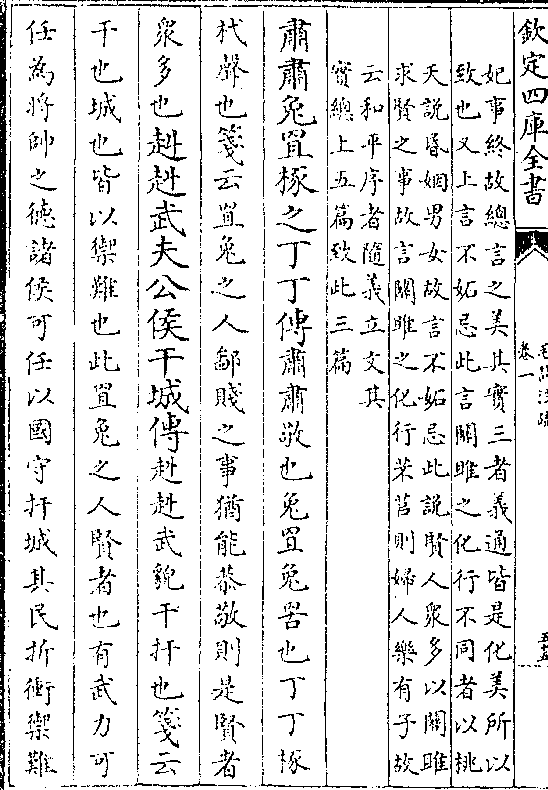 欽定四庫全書
毛詩注疏
卷一
五
妃事終故總言之美其實三者義通皆是化美所以
致也又上言不妬忌此言關雎之化行不同者以桃
天説昏姻男女故言不妬忌此説賢人衆多以關雎
求賢之事故言關雎之化行芣苢則婦人樂有子故
云和平序者隨義立文其
實總上五篇致此三篇
肅肅兔罝椓之丁丁傳肅肅敬也兔罝兔罟也丁丁椓
杙聲也箋云罝兔之人鄙賤之事猶能恭敬則是賢者
衆多也赳赳武夫公侯干城傳赳赳武貌干扞也箋云
干也城也皆以禦難也此罝兔之人賢者也有武力可
任為將帥之德諸侯可任以國守扞城其民折衝禦難